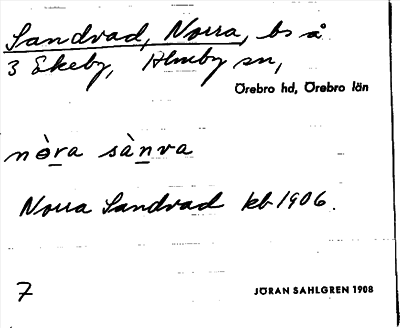 Sandvad, Norra, bs å
3 Ekeby, Almby sn,
Örebro hd, Örebro län
nòra sànva
Norra Sandvad kb 1906.
7
JÖRAN SAHLGREN 1908